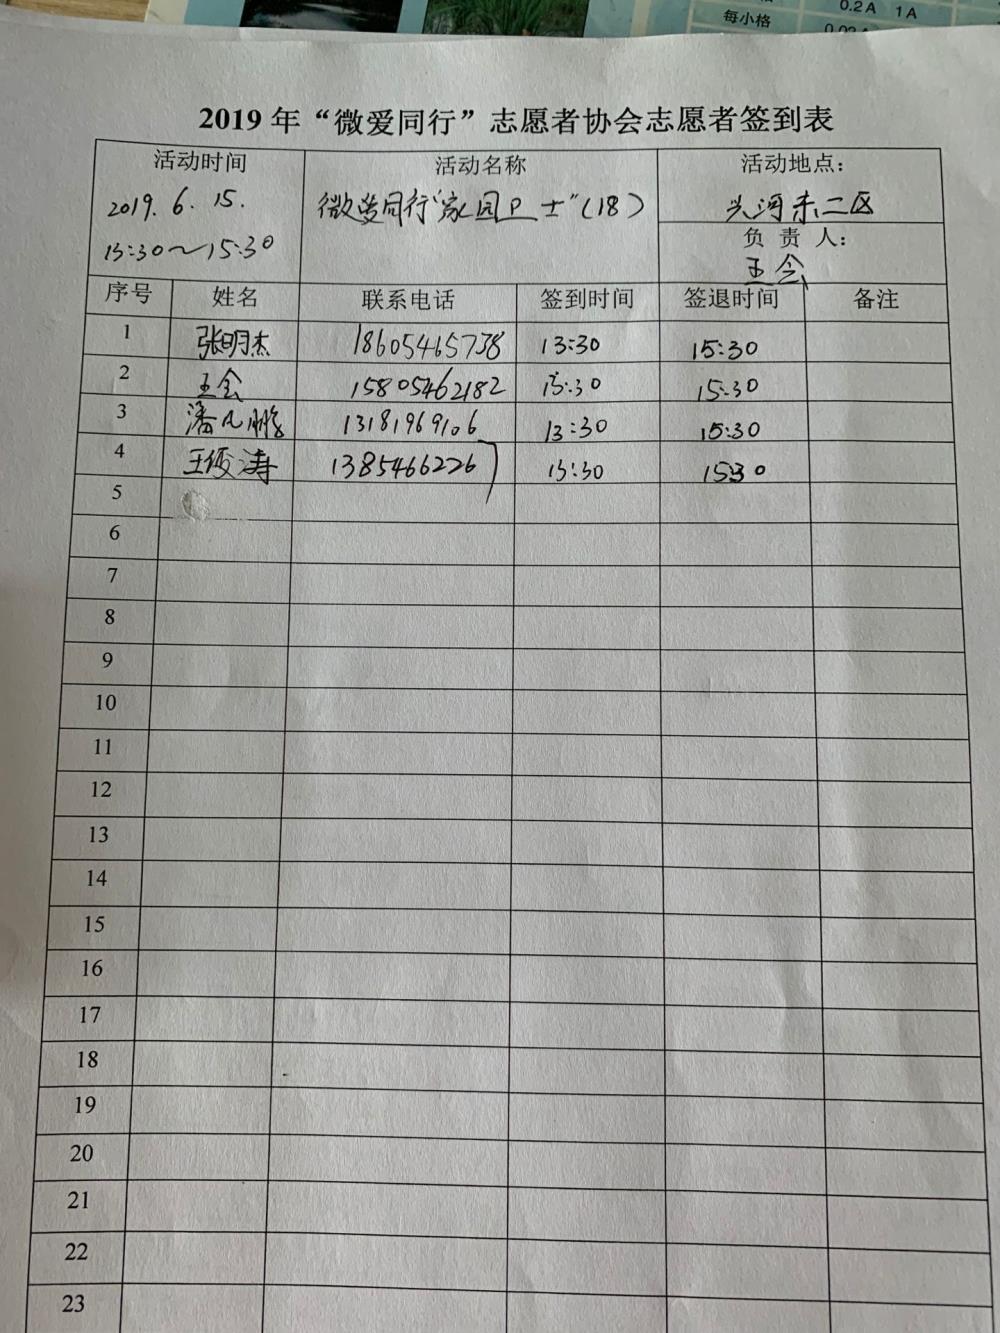 每小格
0.2A 1A
2019年“微爱同行”志愿者协会志愿者签到表
活动时间 活动名称 活动地点：
2019. 6. 15. 微爱同行“家园卫士”(18) 兴河东二区
13:30～15:30 负责人：
王会
序号 姓名 联系电话 签到时间 签退时间 备注
1 张明杰 18605465738 13:30 15:30
2 王会 15805462182 13:30 15:30
3 潘凡鹏 13181969106 13:30 15:30
4 王俊涛 13854662267 13:30 15:30
5
6
7
8
9
10
11
12
13
14
15
16
17
18
19
20
21
22
23